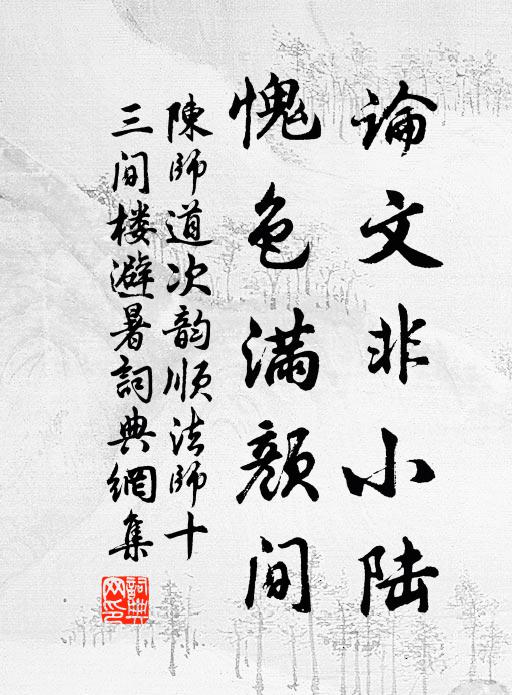 論文非小陆
愧色满颜间
陳師道次韵順法師十
三间楼避暑詞典網集